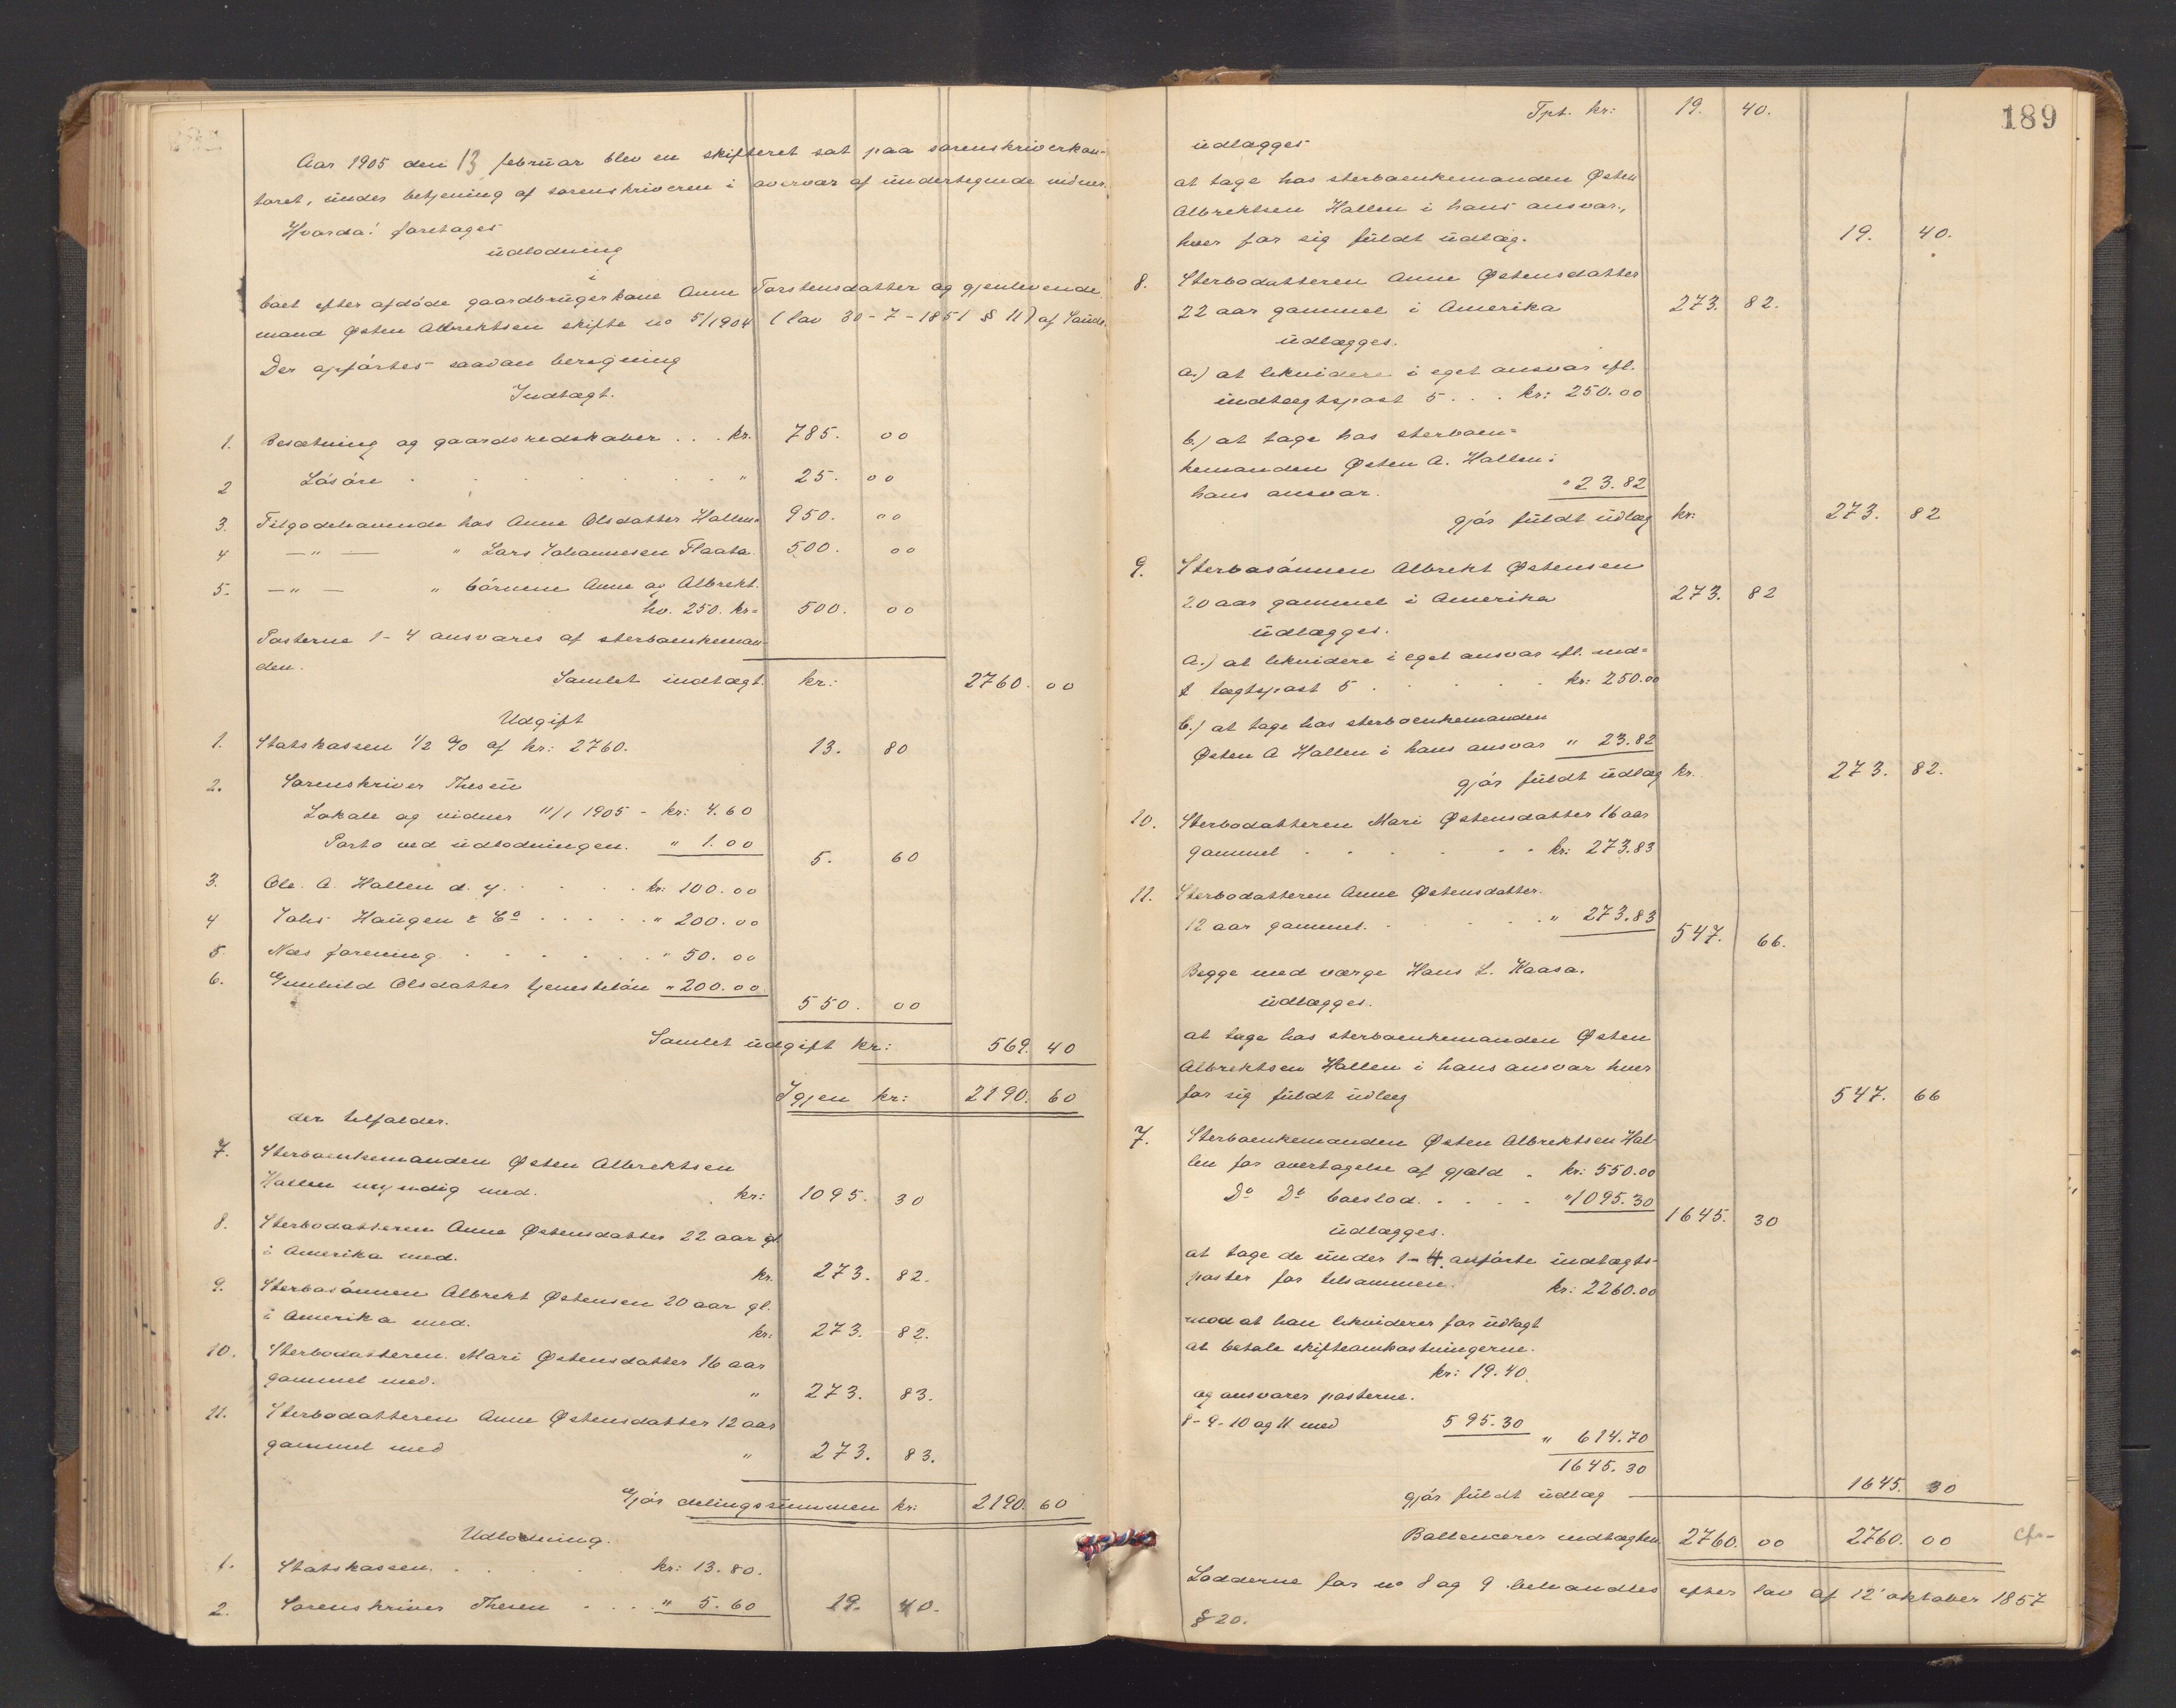 Aar 1905 den 13 februar blev en skifteret sat paa sorenskriverkon-
toret, under betjening af sorenskriveren i overvær af undertegnede vidner.
Hvorda! foretages
udlodning
i
boet efter afdøde gaardbrugerkone Anne Torstensdatter og gjenlevende
mand Østen Albrektsen skifte no 5/1904 (lov 30-7-1851 § 11) af Saude.
Der opførtes saadan beregning
Indtægt.
1. Besætning og gaardsredskaber . . . kr. 785. 00
2 Løsøre . . . . . . . " 25. 00
3. Tilgodehavende hos Anne Olsdatter Hallen= 950. 00
4 —"— " Lars Johannesen Flaata. 500. 00
5. —"— " børnene Anne og Albrekt.
hv. 250. kr= 500. 00
Posterne 1-4 ansvares af sterboenkeman-
den.
Samlet indtægt. kr: 2760. 00
Udgift
1. Statskassen 1/2 % af kr: 2760. 13. 80
2. Sorenskriver Thesen
Lokale og vidner 11/1 1905 - kr: 4.60
Porto ved udlodningen. " 1.00 5. 60
3. Ole. A. Hallen d. y. . . . . kr: 100.00
4 Johs Haugen & Co . . . . . " 200.00
5 Næs forening . . . . . . " 50.00
6. Gunhild Olsdatter tjenesteløn " 200.00
550. 00
Samlet udgift kr: 569. 40
Igjen kr: 2190. 60
der tilfalder.
7. Sterboenkemanden Østen Albrektsen
Hallen myndig med. kr: 1095. 30
8. Sterbodatteren Anne Østensdatter 22 aar gl.
i Amerika med. kr. 273. 82.
9. Sterbosønnen Albrekt Østensen 20 aar gl.
i Amerika med. kr: 273. 82.
10. Sterbodatteren Mari Østensdatter 16 aar
gammel med. " 273. 83.
11. Sterbodatteren Anne Østensdatter 12 aar
gammel med " 273. 83.
Gjør delingssummen kr: 2190. 60
Udlodning.
1. Statskassen. . . . . . kr: 13.80.
2. Sorenskriver Thesen . . . . " 5.60 19. 40.
189
Tpt. kr: 19. 40.
udlægges
at tage hos sterboenkemanden Østen
Albrektsen Hallen i hans ansvar,
hver for sig fuldt udlæg. 19. 40.
8. Sterbodatteren Anne Østensdatter
22 aar gammel i Amerika 273. 82.
udlægges.
a.) at likvidere i eget ansvar efl.
indtægtspost 5 . . . kr: 250.00
b.) at tage hos sterboen=
kemanden Østen A. Hallen i
hans ansvar. " 23.82
gjør fuldt udlæg kr: 273. 82
9. Sterbosønnen Albrekt Østensen
20 aar gammel i Amerika 273. 82
udlægges.
a.) at likvidere i eget ansvar efl. ind=
t tægtspost 5 . . . . . kr: 250.00
b.) at tage hos sterboenkemanden
Østen A Hallen i hans ansvar " 23.82
gjør fuldt udlæg kr. 273. 82.
10. Sterbodatteren Mari Østensdatter 16 aar
gammel . . . . . . kr: 273.83
11. Sterbodatteren Anne Østensdatter.
12 aar gammel. . . . . . " 273.83
547. 66.
Begge med værge Hans L. Kaasa.
udlægges.
at tage hos sterboenkemanden Østen
Albrektsen Hallen i hans ansvar hver
for sig fuldt udlæg 547. 66
7. Sterboenkemanden Østen Albrektsen Hal-
len for overtagelse af gjæld . kr: 550.00
Do Do boeslod. . . . . " 1095.30
1645. 30
udlægges.
at tage de under 1-4 anførte indtægts-
poster for tilsammen. kr: 2260.00
mod at han likviderer for udlagt
at betale skifteomkostningerne.
kr: 19.40.
og ansvarer posterne.
8-9-10 og 11 med 595.30
" 614.70
1645.30
gjør fuldt udlæg 1645. 30
Ballencerer indtægten 2760. 00 2760. 00
Lodderne for no 8 og 9 behandles efter lov af 12' oktober 1857
§ 20.